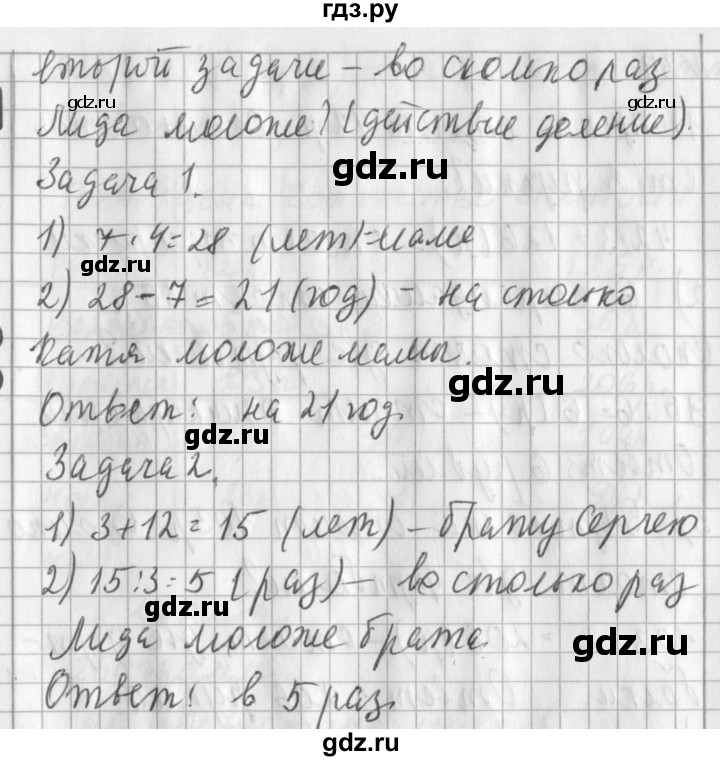 гдз.ру
второй задачи – во сколько раз
Лида моложе? (действие деление).
gdz.ru
gdz.ru
gdz.ru
Задача 1.
1) 7·4=28 (лет)-маме
gdz.ru
2) 28-7=21 (год) – на столько
Катя моложе мамы.
gdz.ru
Ответ: на 21 год.
gdz.ru
Задача 2.
1) 3+12=15 (лет) – брату Сергею
2) 15:3=5 (раз) – во столько раз
gdz.ru
Лида моложе брата.
gdz.ru
Ответ: в 5 раз.
gdz.ru